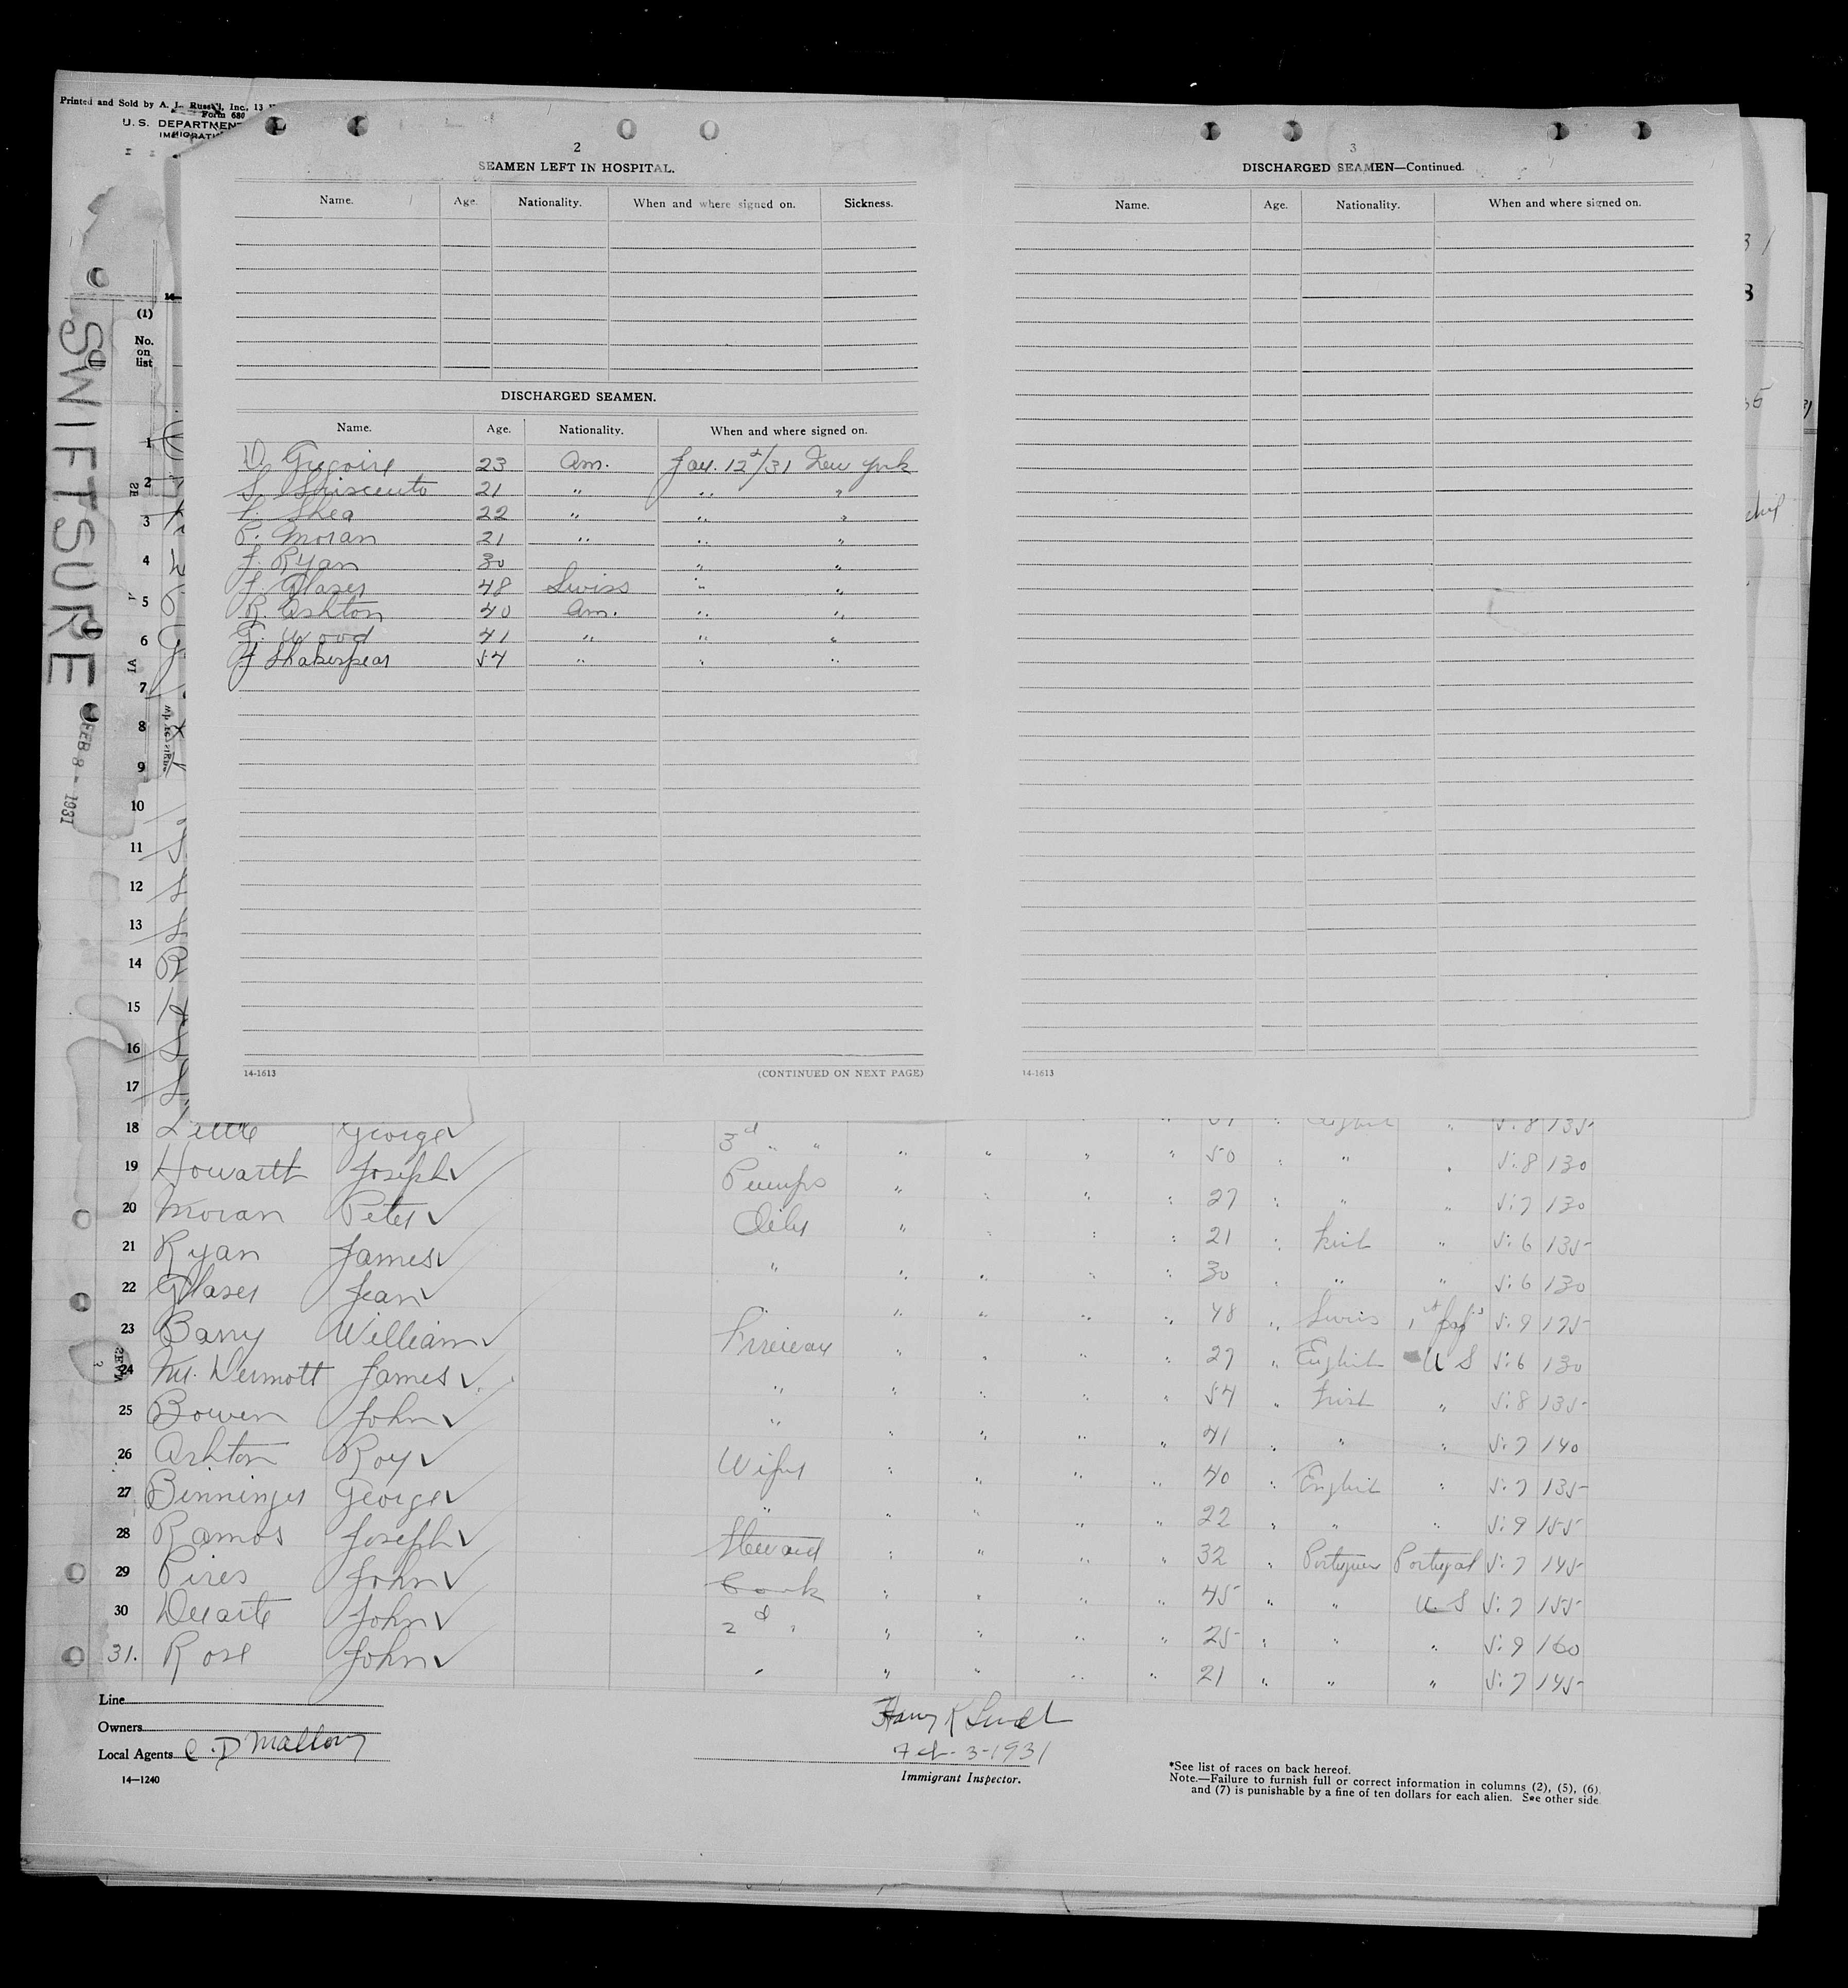 Printed and Sold by A. L. Russell, Inc., 13
Form 680
U. S. DEPARTMENT
IMMIGRATI
2
SEAMEN LEFT IN HOSPITAL.
Name. Age. Nationality. When and where signed on. Sickness.
DISCHARGED SEAMEN.
Name. Age. Nationality. When and where signed on.
23 Am. Jan. 12/31 New York
21 " " "
Shea 22 " " "
P. Moran 21 " " "
J. Ryan 30 " "
J. Glaser 48 Swiss " "
R. Ashton 40 Am. " "
G. Wood 41 " " "
J Shakespear 54 " " "
14-1613 (CONTINUED ON NEXT PAGE)
3
DISCHARGED SEAMEN—Continued.
Name. Age. Nationality. When and where signed on.
14-1613
SWIFTSURE
FEB 8 - 1931
(1)
No. on list
1
2
3
4
5
6
7
8
9
10
11
12
13
14
15
16
17
18 Little George 3d " " English " 5:8 135
19 Howarth Joseph Pumps " " " " 50 " " " 5:8 130
20 Moran Peter Oiler " " " " 27 " " " 5:7 130
21 Ryan James " " " " 21 " Irish " 5:6 135
22 Glaser Jean " " " " " 30 " " " 5:6 130
23 Barry William Fireman " " " " 48 " Swiss 5:9 125
24 Mc. Dermott James " " " " " 27 " English U S 5:6 130
25 Bowen John " " " " " 54 " Irish " 5:8 135
26 Ashton Roy Wiper " " " " 41 " " " 5:7 140
27 Benninger George " " " " " 40 " English " 5:7 135
28 Ramos Joseph Steward " " " " 22 " " " 5:9 155
29 Pires John Cook " " " " 32 " Portuguese Portugal 5:7 145
30 Duarte John 2d " " " " " 45 " " U. S 5:7 155
31. Rose John " " " " " 25 " " " 5:9 160
" " " " 21 " " " 5:7 145
Line
Owners
Local Agents C. D Mallory
14—1240
Feb-3-1931
Immigrant Inspector.
*See list of races on back hereof.
Note.—Failure to furnish full or correct information in columns (2), (5), (6),
and (7) is punishable by a fine of ten dollars for each alien. See other side